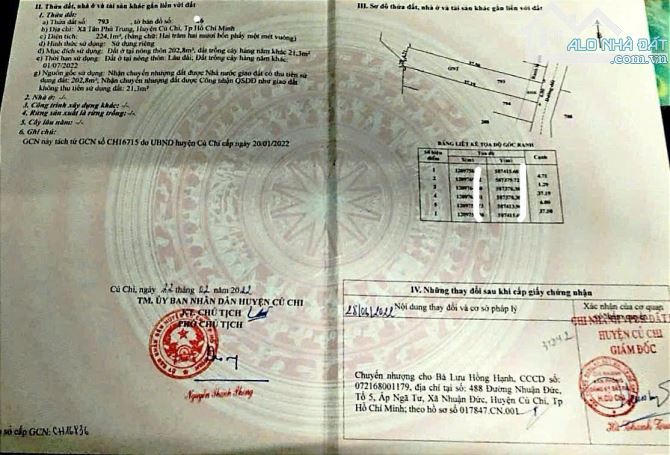 II. Thửa đất, nhà ở và tài sản khác gắn liền với đất
1. Thửa đất:
a) Thửa đất số: 793 , tờ bản đồ số: 6
b) Địa chỉ: Xã Tân Phú Trung, Huyện Củ Chi, Tp Hồ Chí Minh
c) Diện tích: 224,1m², (bằng chữ: Hai trăm hai mươi bốn phẩy một mét vuông)
d) Hình thức sử dụng: Sử dụng riêng
đ) Mục đích sử dụng: Đất ở tại nông thôn 202,8m², đất trồng cây hàng năm khác 21,3m²
e) Thời hạn sử dụng: Đất ở tại nông thôn: Lâu dài; Đất trồng cây hàng năm khác:
01/07/2022
g) Nguồn gốc sử dụng: Nhận chuyển nhượng đất được Nhà nước giao đất có thu tiền sử
dụng đất: 202,8m²; Nhận chuyển nhượng đất được Công nhận QSDĐ như giao đất
không thu tiền sử dụng đất: 21,3m²
2. Nhà ở: -/-
3. Công trình xây dựng khác: -/-
4. Rừng sản xuất là rừng trồng: -/-
5. Cây lâu năm: -/-
6. Ghi chú:
GCN này tách từ GCN số CH16715 do UBND huyện Củ Chi cấp ngày 20/01/2022
Củ Chi, ngày 22 tháng 02 năm 2022
TM. ỦY BAN NHÂN DÂN HUYỆN CỦ CHI
KT. CHỦ TỊCH
PHÓ CHỦ TỊCH
Nguyễn Thanh Phong
số cấp GCN: CH16836
III. Sơ đồ thửa đất, nhà ở và tài sản khác gắn liền với đất
ALO NHÀ ĐẤT
.com.vn
ONT
37.00
37.19
793
794
708
6.00
BẢNG LIỆT KÊ TỌA ĐỘ GÓC RANH
Số hiệu điểm
Tọa độ
Cạnh
X(m)
Y(m)
1
587415.60
4.71
2
1.29
3
587378.30
37.19
4
6.00
5
37.00
1
IV. Những thay đổi sau khi cấp giấy chứng nhận
Nội dung thay đổi và cơ sở pháp lý
Xác nhận của cơ quan
có thẩm quyền
HUYỆN CỦ CHI
GIÁM ĐỐC
Chuyển nhượng cho Bà Lưu Hồng Hạnh, CCCD số:
072168001179, địa chỉ tại số: 488 Đường Nhuận Đức,
Tổ 5, Ấp Ngã Tư, Xã Nhuận Đức, Huyện Củ Chi, Tp
Hồ Chí Minh; theo hồ sơ số 017847.CN.001